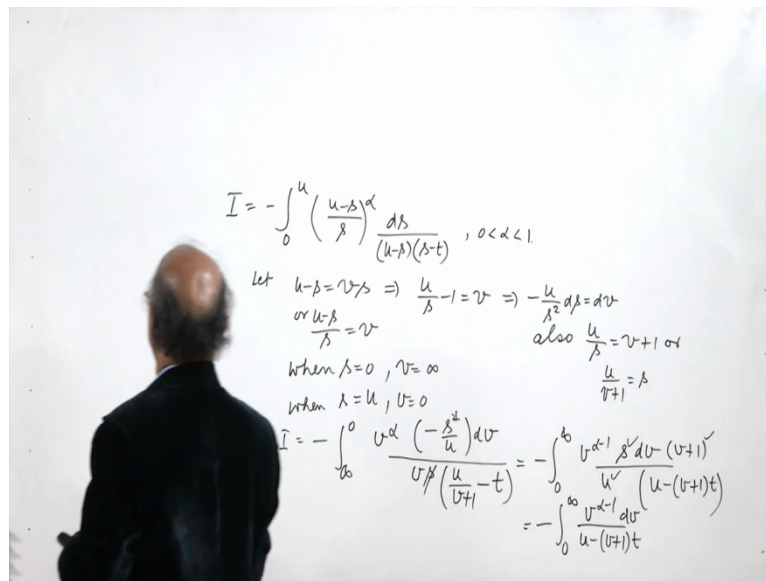 I = - ∫₀ᵘ ((u-s)/s)^α ds/((u-s)(s-t)) , 0<α<1.
Let u-s=vs ⇒ u/s -1=v ⇒ -u/s² ds=dv
or (u-s)/s = v also u/s = v+1 or
when s=0 , v=∞ u/(v+1) = s
when s=u , v=0
I = - ∫_∞^0 v^α (-s²/u) dv / (vs (u/(v+1) - t)) = - ∫₀^∞ v^(α-1) s dv (v+1) / (u (u-(v+1)t)
= - ∫₀^∞ v^(α-1) dv / (u-(v+1)t)